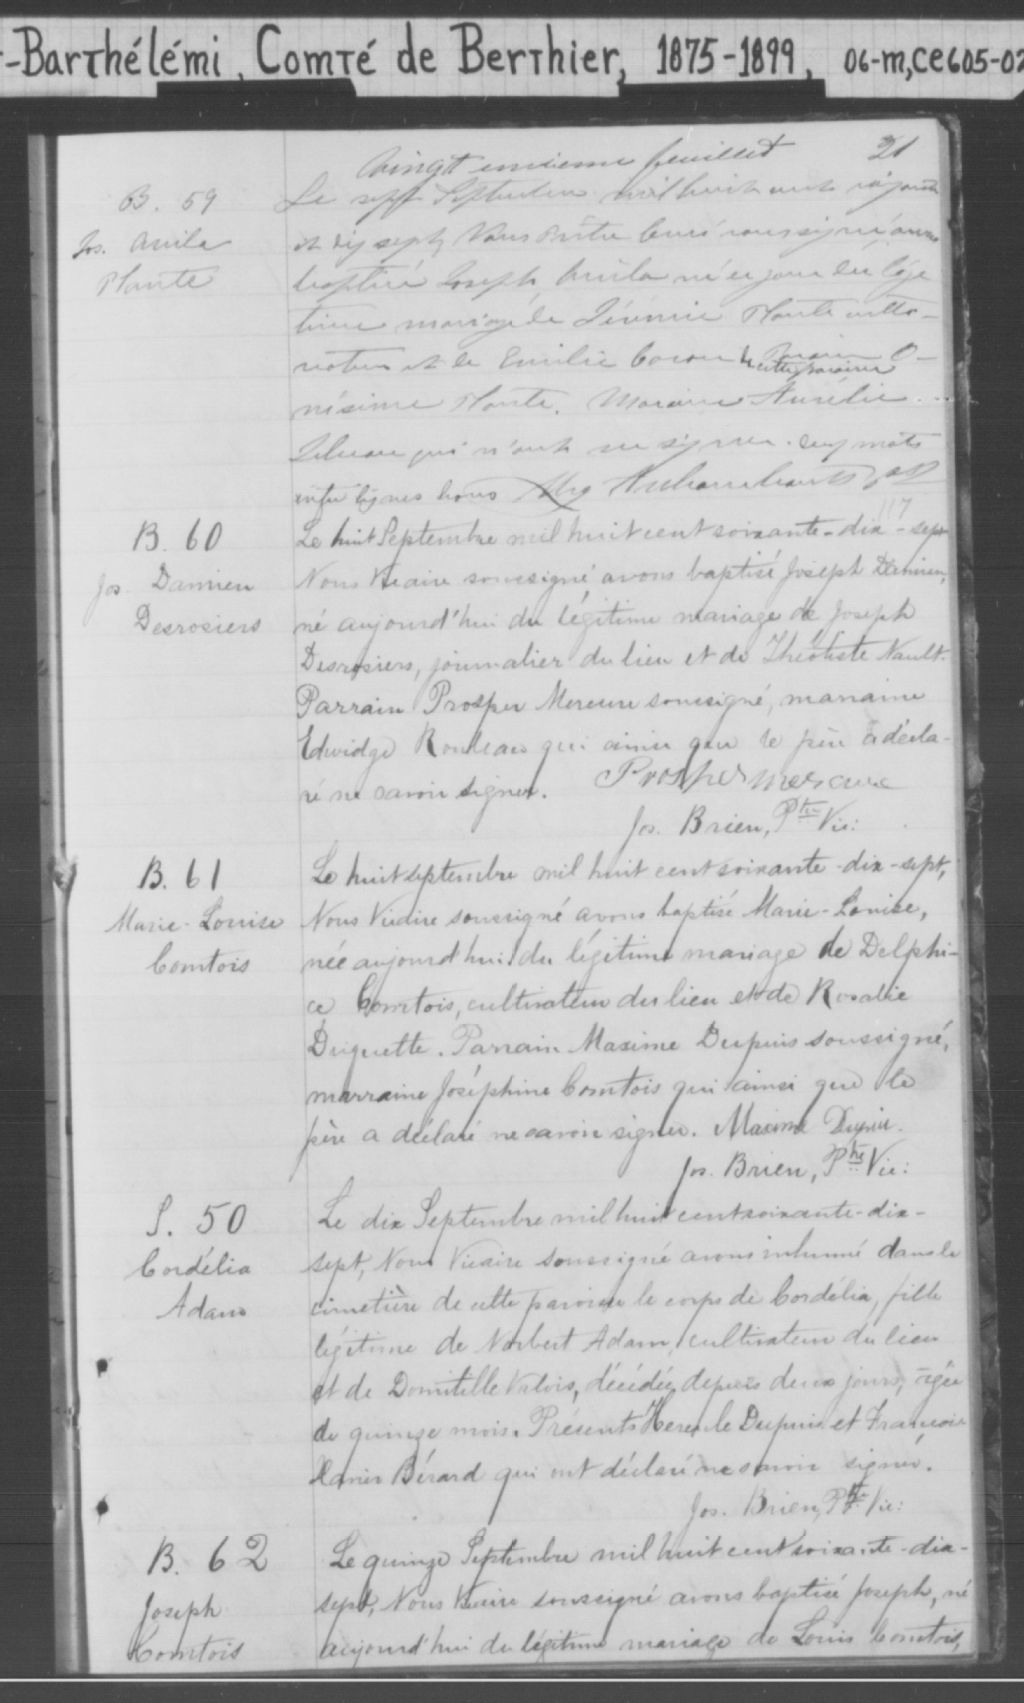 -Barthélémi, Comté de Berthier, 1875-1899, 06-m,CE605-02
Vingt unieme feuillet 21
B. 59
Jos. Avila
Plante
Le sept Septembre mil huit cent soixante
et dix sept, Nous Prêtre Curé soussigné avons
baptisé Joseph Avila né ce jour du légi
time mariage de Plante culti-
vateur et de Emilie Caron de cette paroisse Parrain O-
nésime Plante. Marraine Aurélie
qui n'ont su signer. cinq mots
entre lignes bons
117
B. 60
Jos. Damien
Desrosiers
Le huit Septembre mil huit cent soixante-dix-sept
Nous Vicaire soussigné avons baptisé Joseph Damien,
né aujourd'hui du légitime mariage de Joseph
Desrosiers, journalier du lieu et de Théotiste Nault.
Parrain Prosper Mercure soussigné, marraine
Edwidge Rouleau qui ainsi que le père a décla-
ré ne savoir signer. Prosper mercure
Jos. Brien, Ptre Vic:
B. 61
Marie-Louise
Comtois
Le huit septembre mil huit cent soixante-dix-sept,
Nous Vicaire soussigné avons baptisé Marie-Louise,
née aujourd'hui du légitime mariage de Delphi-
ce Comtois, cultivateur du lieu et de Rosalie
Duguette. Parrain Maxime Dupuis soussigné,
marraine Joséphine Comtois qui ainsi que le
père a déclaré ne savoir signer. Maxime Dupui.
Jos. Brien, Ptre Vic:
S. 50
Cordélia
Adam
Le dix Septembre mil huit cent soixante-dix-
sept, Nous Vicaire soussigné avons inhumé dans le
cimetière de cette paroisse le corps de Cordélia, fille
légitime de Norbert Adam, cultivateur du lieu
et de Domitille Valois, décédée depuis deux jours, âgée
de quinze mois. Présents Hercule Dupuis et François
Xavier Bérard qui ont déclaré ne savoir signer.
Jos. Brien, Ptre Vic:
B. 62
Joseph
Comtois
Le quinze Septembre mil huit cent soixante-dix-
sept, Nous Vicaire soussigné avons baptisé Joseph, né
aujourd'hui du légitime mariage de Louis Comtois,